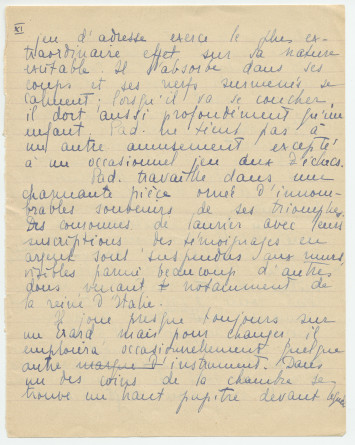 XI
jeu d'adresse exerce le plus ex-
traordinaire effet sur sa nature
irritable. Il s'absorbe dans ses
coups et ses nerfs surmenés se
calment; lorsqu'il va se coucher,
il dort aussi profondément qu'un
enfant. Pad. ne tient pas à
un autre amusement excepté
à un occasionnel jeu aux échecs.
Pad. travaille dans une
charmante pièce ornée d'innom-
brables souvenirs de ses triomphes.
Des couronnes de laurier avec leurs
inscriptions des témoignages en
argent sont suspendus aux murs,
visibles parmi beaucoup d'autres
dons venant notamment de
la reine d'Italie.
Il joue presque toujours sur
un Erard mais pour changer il
emploiera occasionnellement quelque
autre marque d'instrument. Dans
un des coins de la chambre se
trouve un haut pupitre devant lequel